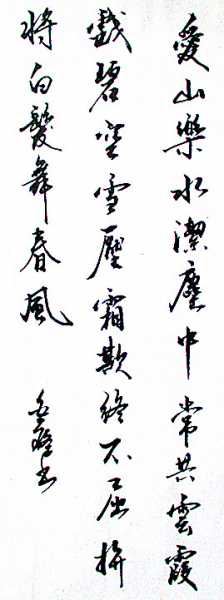 愛山樂水潔塵中常共雲霞
戲碧空雪壓霜欺終不屈拚
將白髮舞春風